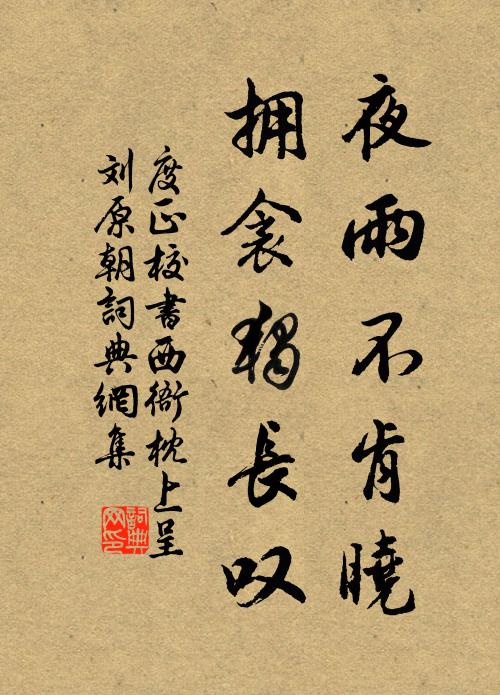 夜雨不肯曉
拥衾獨長叹
度正校書西衙枕上呈
刘原朝詞典網集
詞典
网印